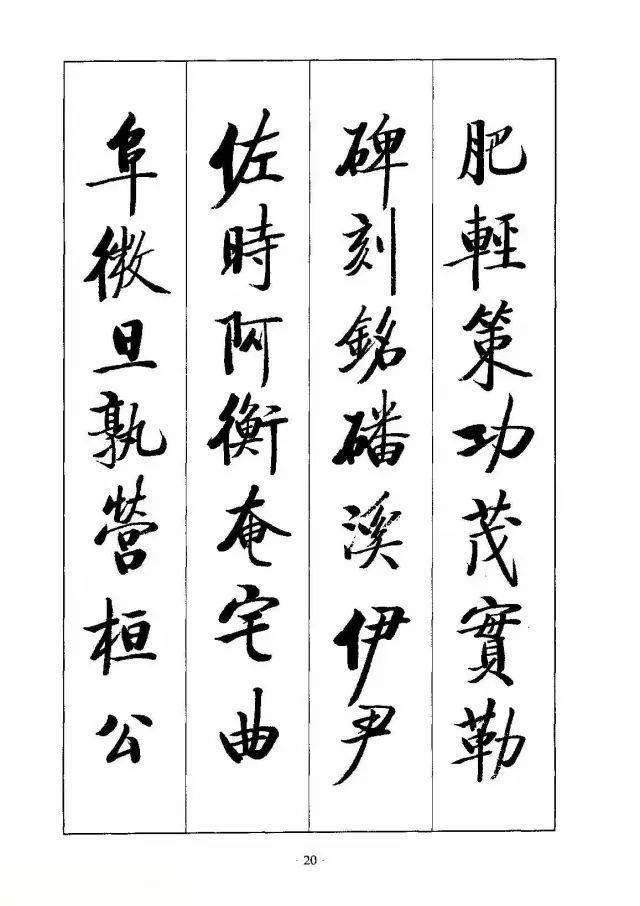 肥輕策功茂實勒
碑刻銘磻溪伊尹
佐時阿衡奄宅曲
阜微旦孰營桓公
· 20 ·